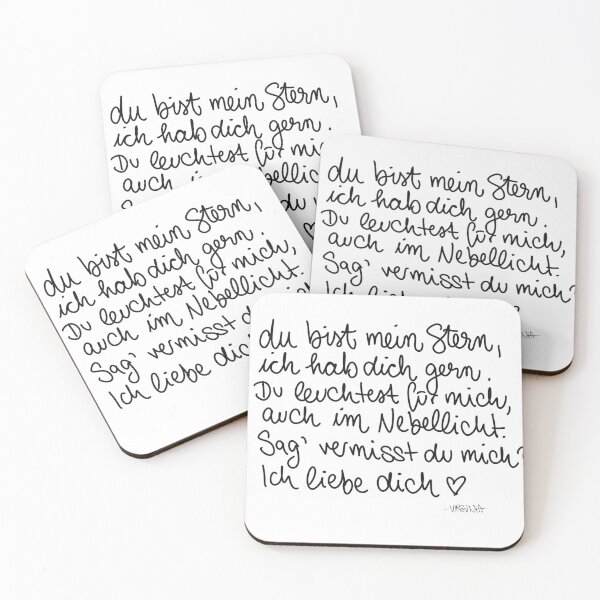 du bist mein Stern,
ich hab dich gern.
Du leuchtest für
auch im
du
du bist mein Stern,
ich hab dich gern.
Du leuchtest für mich,
auch im Nebellicht.
Sag' vermisst du mich?
Ich
du bist mein Stern,
ich hab dich gern.
Du leuchtest für mich,
auch im Nebellicht.
Sag' vermisst du
Ich liebe
du bist mein Stern,
ich hab dich gern.
Du leuchtest für mich,
auch im Nebellicht.
Sag' vermisst du mich?
Ich liebe dich ♡